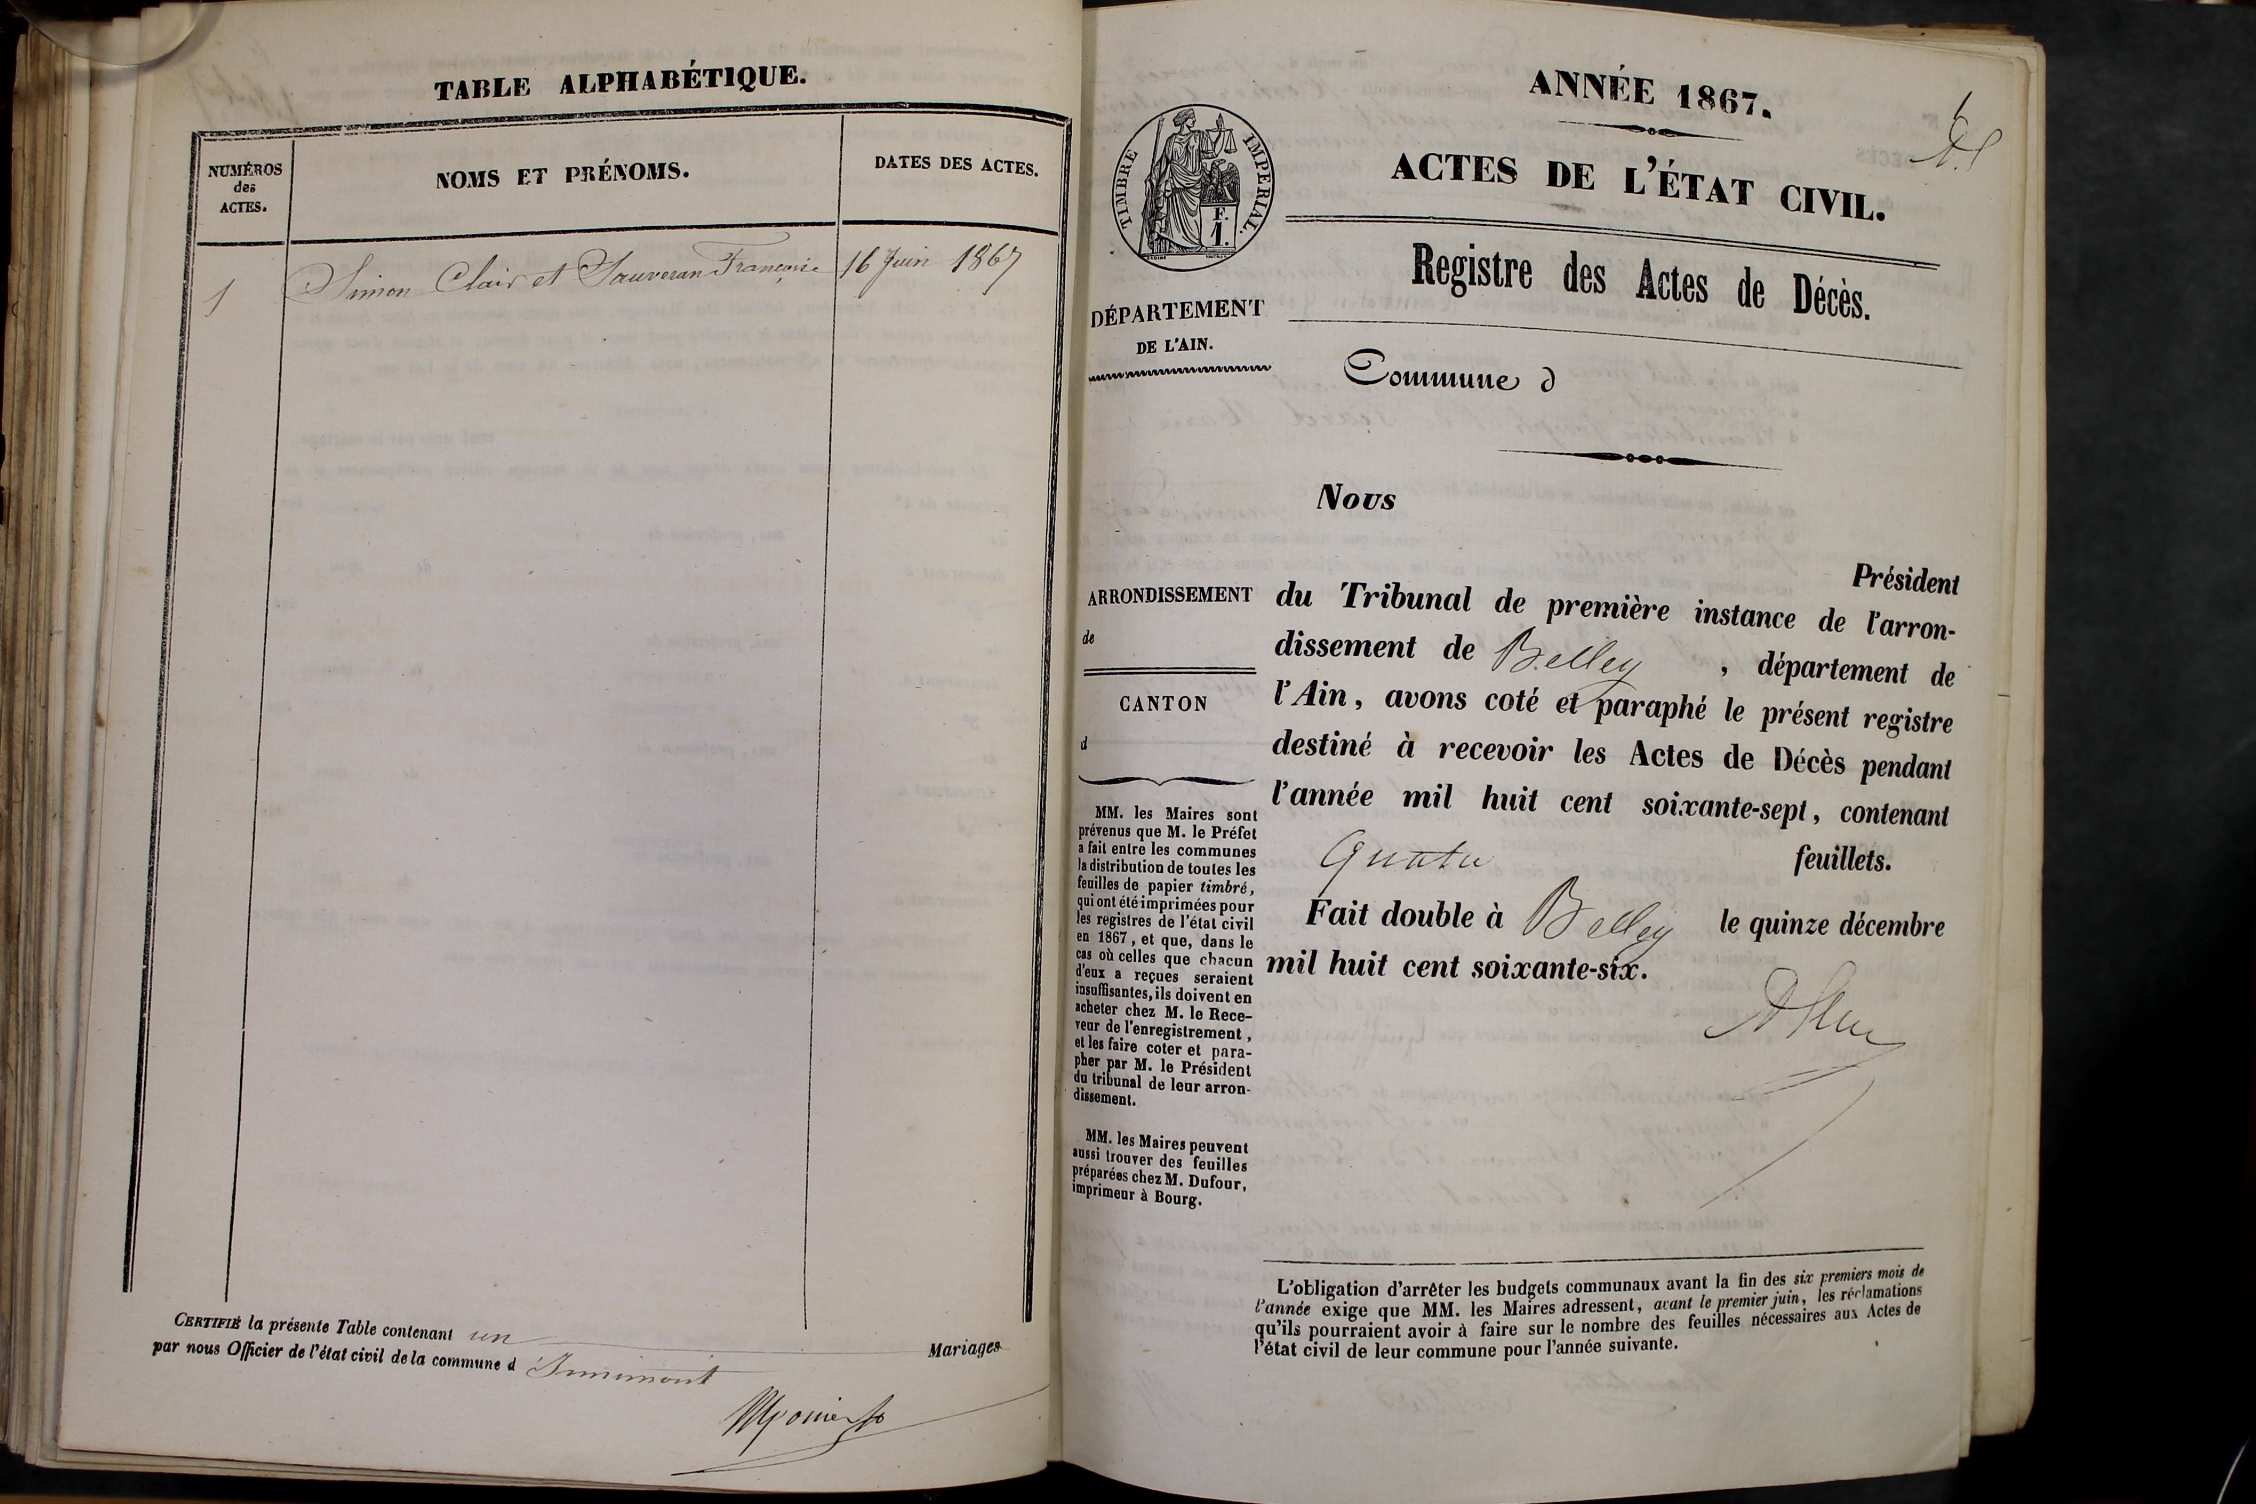 TABLE ALPHABÉTIQUE.
NUMÉROS
des
ACTES.
NOMS ET PRÉNOMS.
DATES DES ACTES.
1 Simon Clair et Sauveran Françoise 16 Juin 1867
CERTIFIÉ la présente Table contenant un Mariages
par nous Officier de l'état civil de la commune d Innimont
ANNÉE 1867.
ACTES DE L'ÉTAT CIVIL.
TIMBRE IMPERIAL.
F.
1.
Registre des Actes de Décès.
DÉPARTEMENT
DE L'AIN.
Commune d
Nous
Président
ARRONDISSEMENT
de
CANTON
d
du Tribunal de première instance de l'arron-
dissement de Belley, département de
l'Ain, avons coté et paraphé le présent registre
destiné à recevoir les Actes de Décès pendant
l'année mil huit cent soixante-sept, contenant
quatre feuillets.
Fait double à Belley le quinze décembre
mil huit cent soixante-six.
MM. les Maires sont
prévenus que M. le Préfet
a fait entre les communes
la distribution de toutes les
feuilles de papier timbré,
qui ont été imprimées pour
les registres de l'état civil
en 1867, et que, dans le
cas où celles que chacun
d'eux a reçues seraient
insuffisantes, ils doivent en
acheter chez M. le Rece-
veur de l'enregistrement,
et les faire coter et para-
pher par M. le Président
du tribunal de leur arron-
dissement.
MM. les Maires peuvent
aussi trouver des feuilles
préparées chez M. Dufour,
imprimeur à Bourg.
L'obligation d'arrêter les budgets communaux avant la fin des six premiers mois de
l'année exige que MM. les Maires adressent, avant le premier juin, les réclamations
qu'ils pourraient avoir à faire sur le nombre des feuilles nécessaires aux Actes de
l'état civil de leur commune pour l'année suivante.